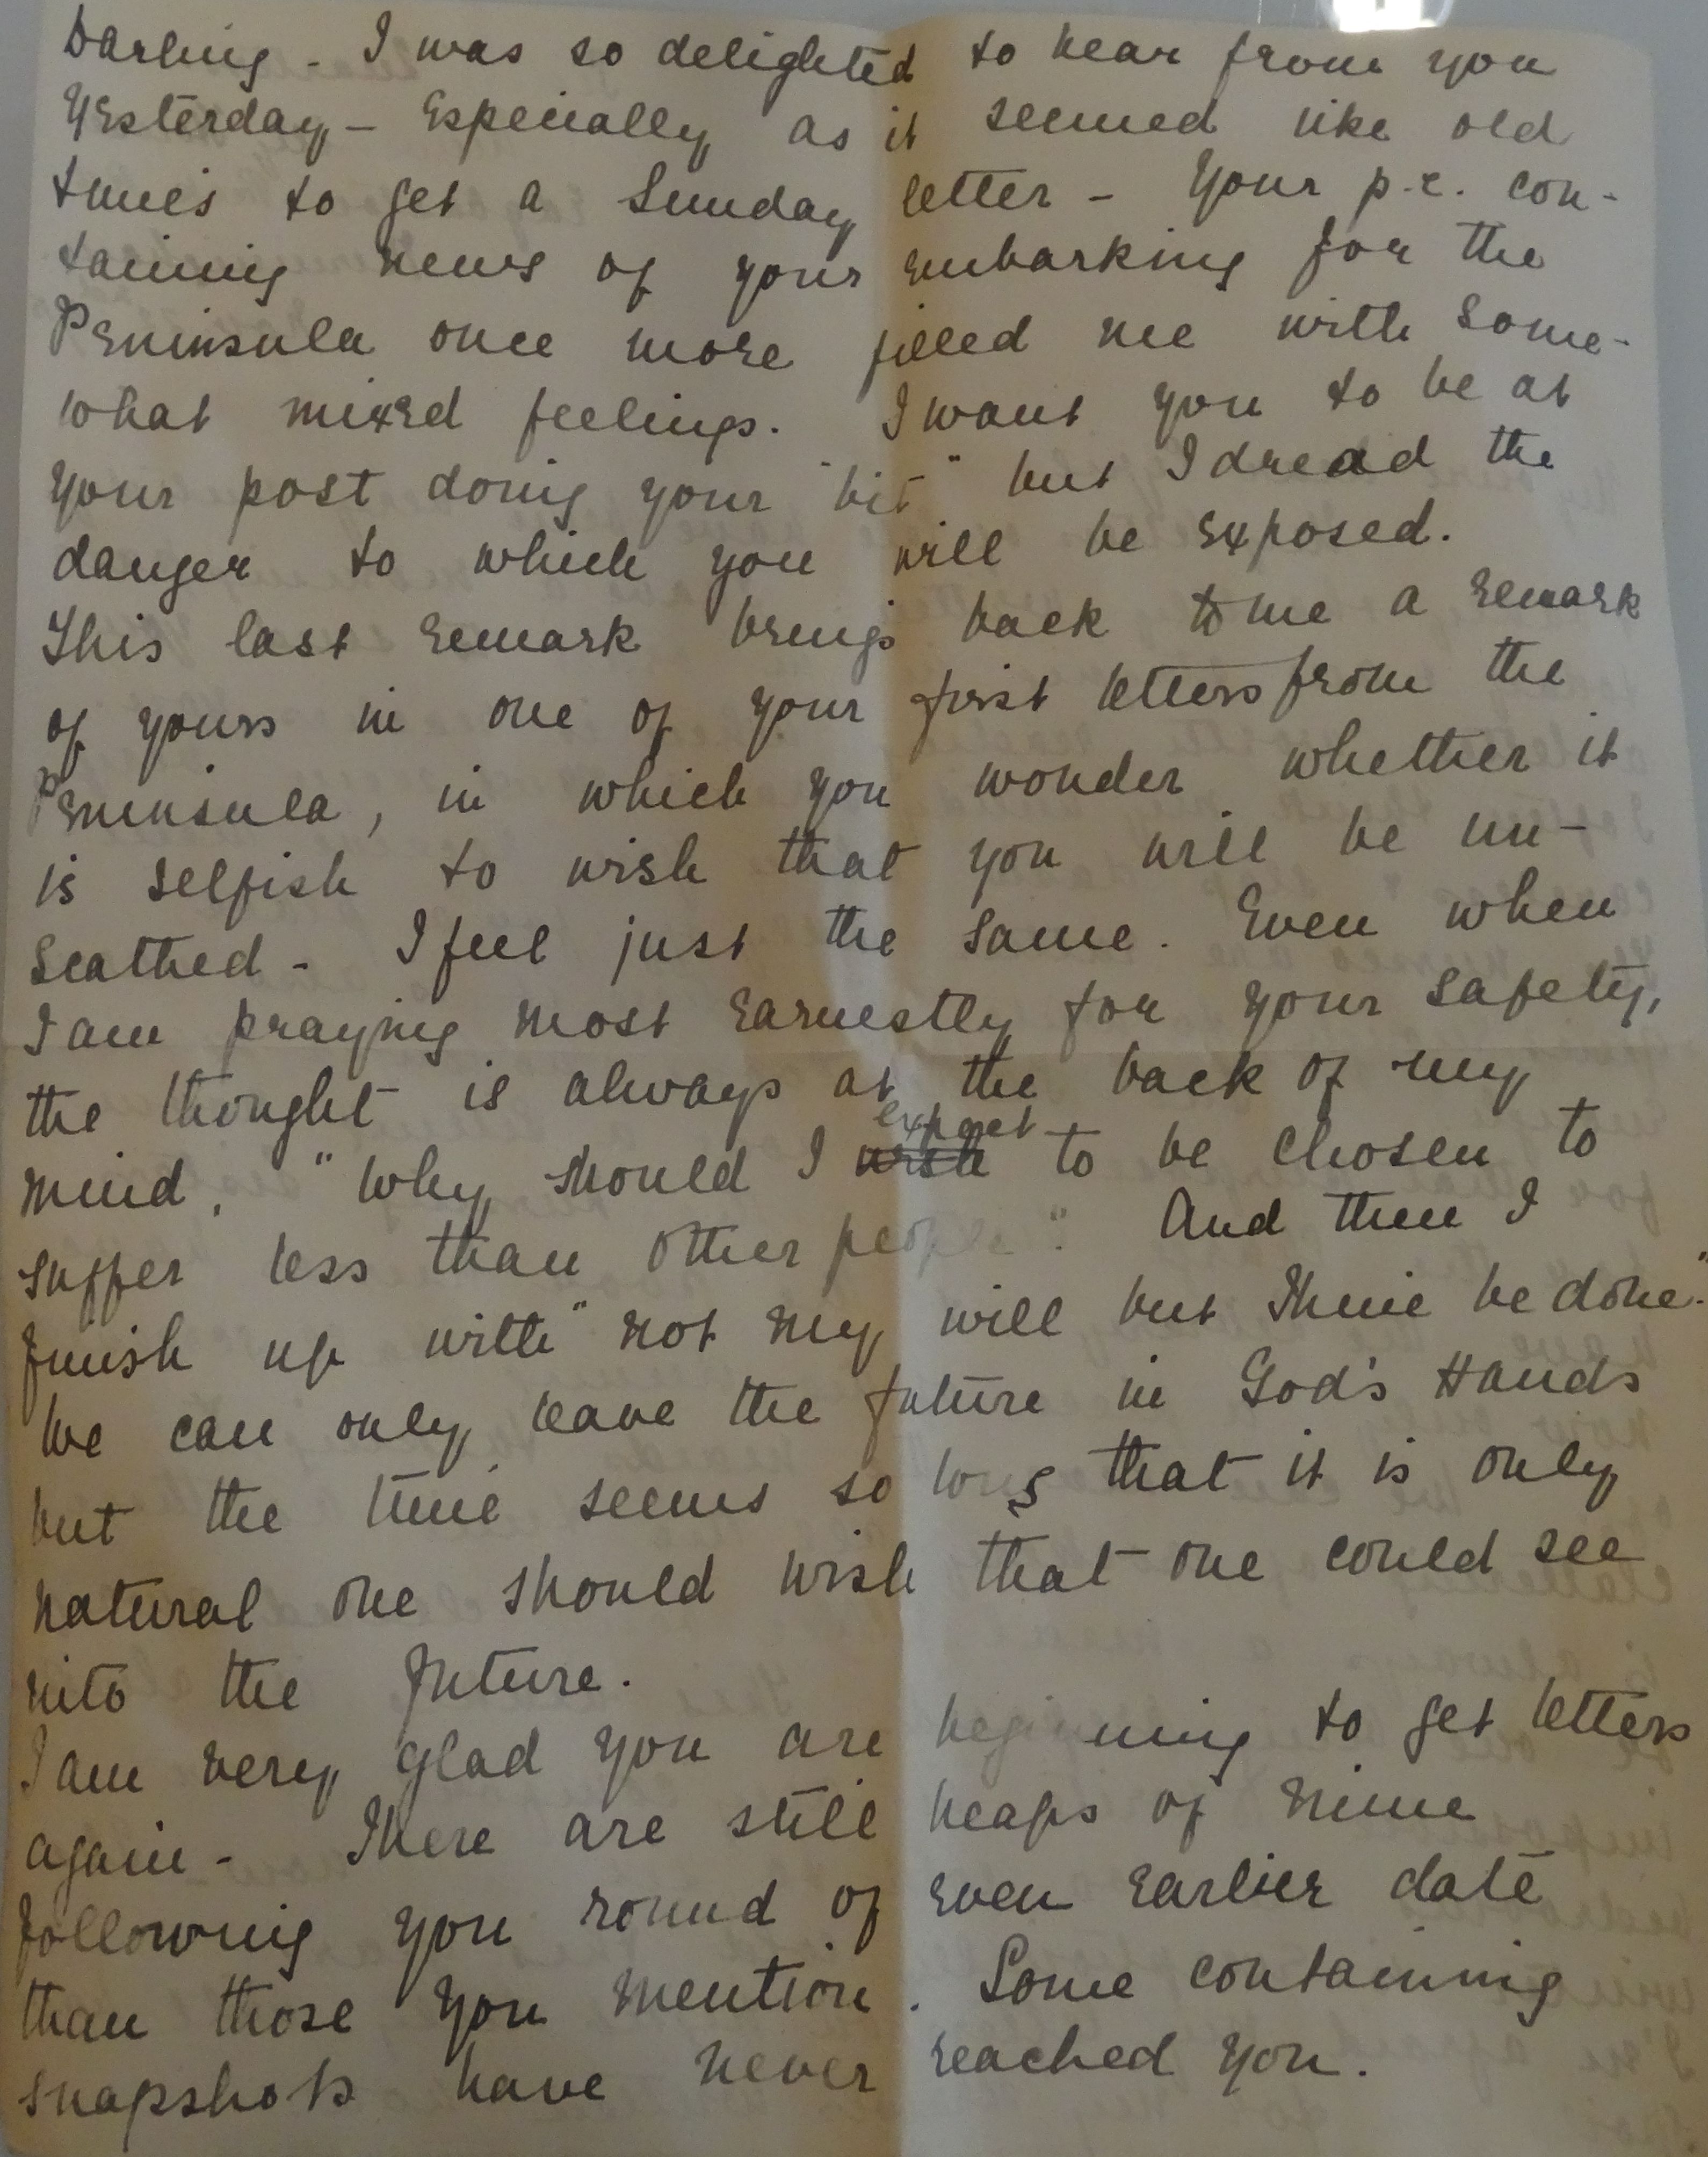 Darling - I was so delighted to hear from you
yesterday - Especially as it seemed like old
times to get a Sunday letter - Your p.c. con-
taining news of your embarking for the
Peninsula once more filled me with some-
what mixed feelings. I want you to be at
your post doing your "bit" but I dread the
danger to which you will be exposed.
This last remark brings back to me a remark
of yours in one of your first letters from the
Peninsula, in which you wonder whether it
is selfish to wish that you will be un-
scathed - I feel just the same. Even when
I am praying most earnestly for your safety,
the thought is always at the back of my
expect
mind, "Why should I wish to be chosen to
suffer less than other people". And then I
finish up with "not my will but Thine be done."
We can only leave the future in God's Hands
but the time seems so long that it is only
natural one should wish that one could see
into the future.
I am very glad you are beginning to get letters
again - There are still heaps of mine
following you round of even earlier date
than those you mention. Some containing
snapshots have never reached you.